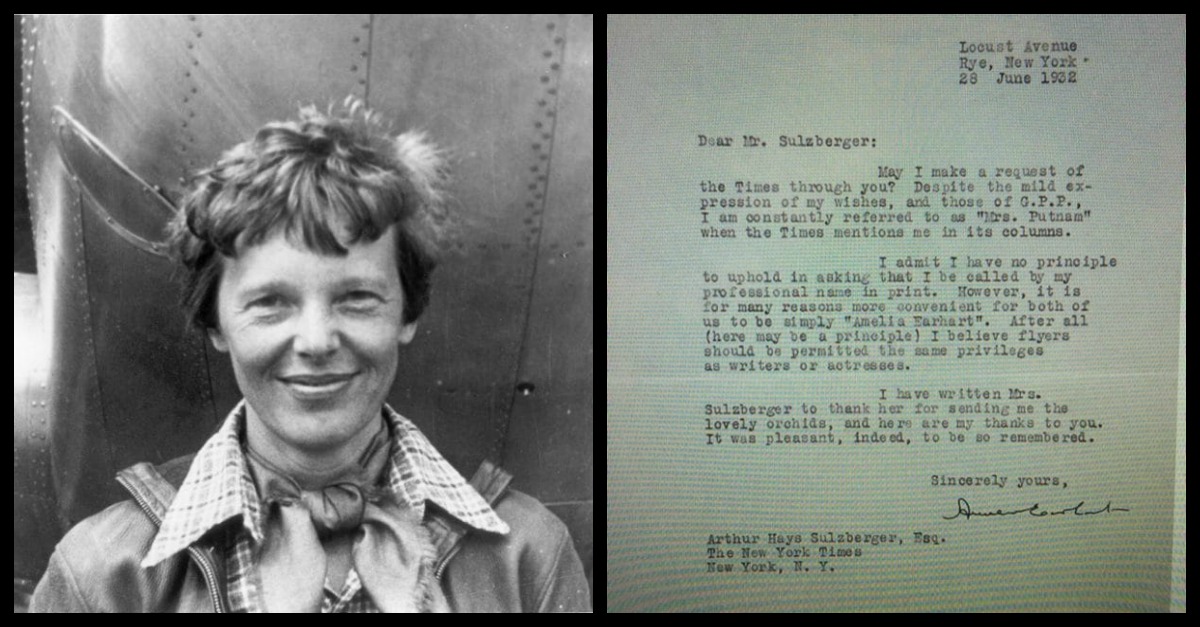 Locust Avenue
Rye, New York
28 June 1932
Dear Mr. Sulzberger:
May I make a request of
the Times through you? Despite the mild ex-
pression of my wishes, and those of G.P.P.,
I am constantly referred to as "Mrs. Putnam"
when the Times mentions me in its columns.
I admit I have no principle
to uphold in asking that I be called by my
professional name in print. However, it is
for many reasons more convenient for both of
us to be simply "Amelia Earhart". After all
(here may be a principle) I believe flyers
should be permitted the same privileges
as writers or actresses.
I have written Mrs.
Sulzberger to thank her for sending me the
lovely orchids, and here are my thanks to you.
It was pleasant, indeed, to be so remembered.
Sincerely yours,
Amelia Earhart
Arthur Hays Sulzberger, Esq.
The New York Times
New York, N. Y.